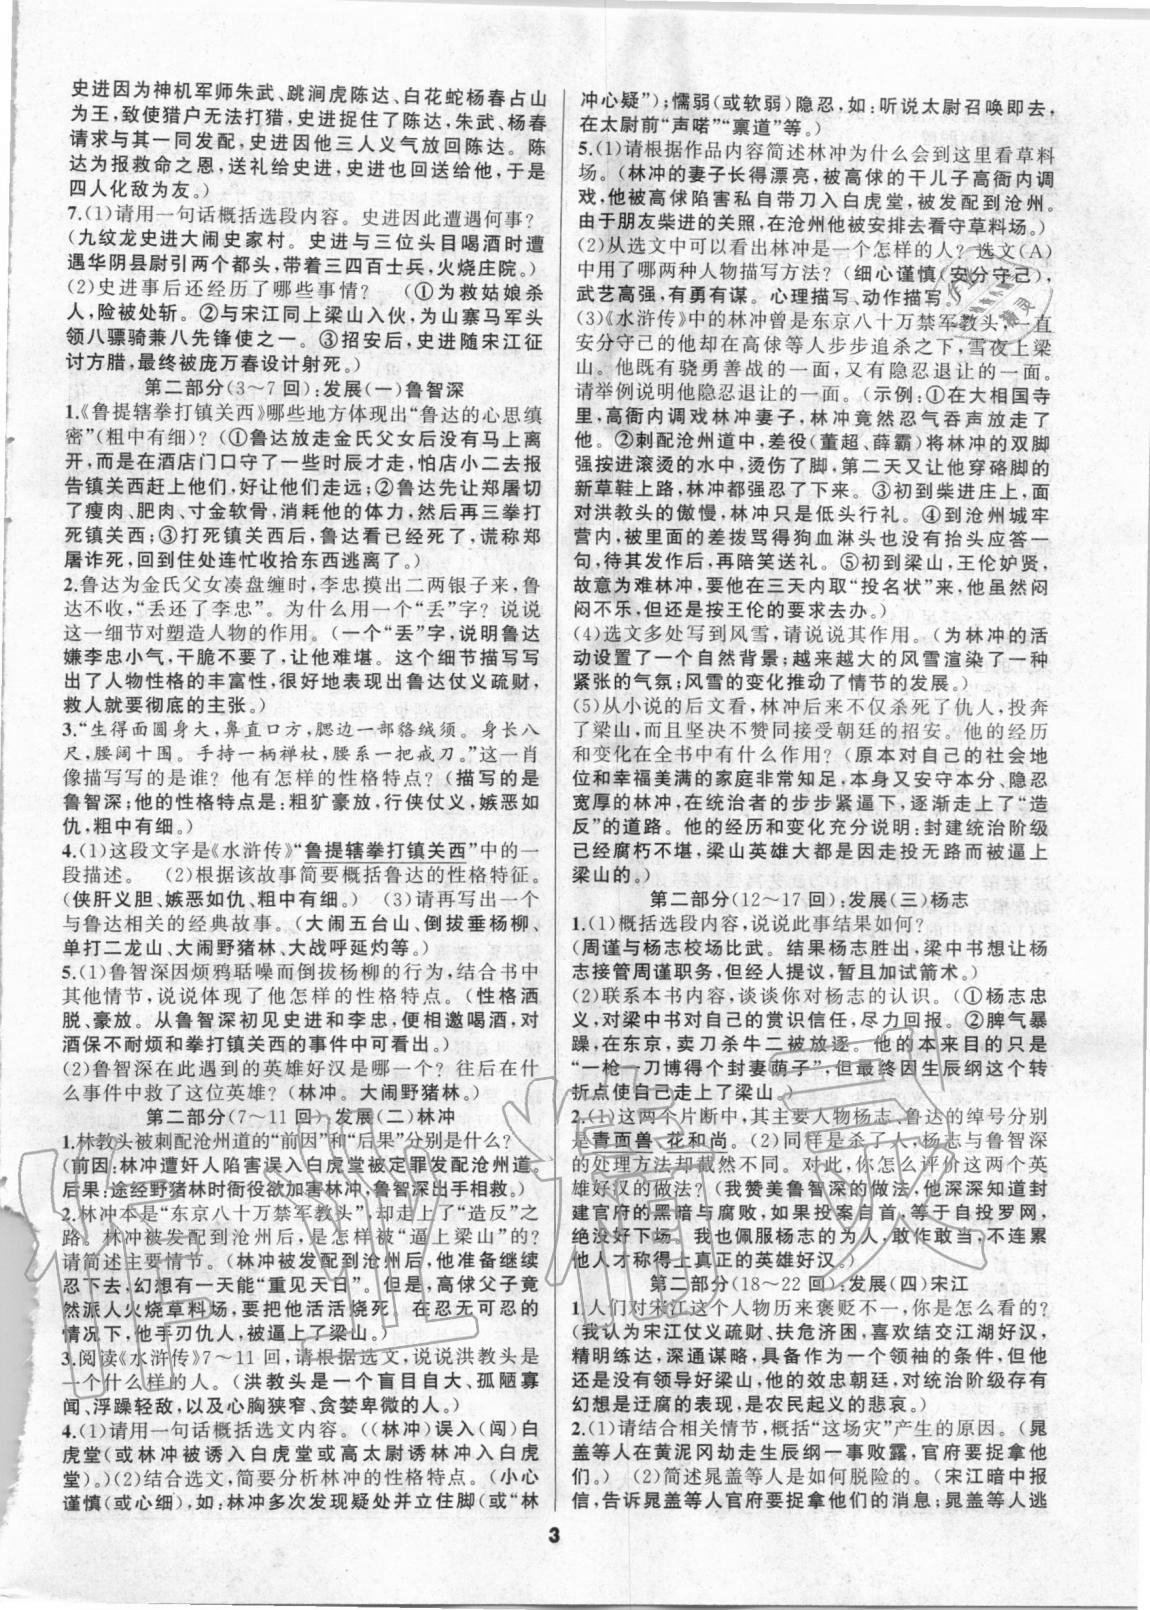 史进因为神机军师朱武、跳涧虎陈达、白花蛇杨春占山
为王,致使猎户无法打猎,史进捉住了陈达,朱武、杨春
请求与其一同发配,史进因他三人义气放回陈达。陈
达为报救命之恩,送礼给史进,史进也回送给他,于是
四人化敌为友。)
7.(1)请用一句话概括选段内容。史进因此遭遇何事?
(九纹龙史进大闹史家村。史进与三位头目喝酒时遭
遇华阴县尉引两个都头,带着三四百士兵,火烧庄院。)
(2)史进事后还经历了哪些事情? (①为救姑娘杀
人,险被处斩。②与宋江同上梁山入伙,为山寨马军头
领八骠骑兼八先锋使之一。③招安后,史进随宋江征
讨方腊,最终被庞万春设计射死。)
第二部分(3～7回):发展(一)鲁智深
1.《鲁提辖拳打镇关西》哪些地方体现出“鲁达的心思缜
密”(粗中有细)? (①鲁达放走金氏父女后没有马上离
开,而是在酒店门口守了一些时辰才走,怕店小二去报
告镇关西赶上他们,好让他们走远;②鲁达先让郑屠切
了瘦肉、肥肉、寸金软骨,消耗他的体力,然后再三拳打
死镇关西;③打死镇关西后,鲁达看已经死了,谎称郑
屠诈死,回到住处连忙收拾东西逃离了。)
2.鲁达为金氏父女凑盘缠时,李忠摸出二两银子来,鲁
达不收,“丢还了李忠”。为什么用一个“丢”字? 说说
这一细节对塑造人物的作用。(一个“丢”字,说明鲁达
嫌李忠小气,干脆不要了,让他难堪。这个细节描写写
出了人物性格的丰富性,很好地表现出鲁达仗义疏财,
救人就要彻底的主张。)
3.“生得面圆身大,鼻直口方,腮边一部貉䋴须。身长八
尺,腰阔十围。手持一柄禅杖,腰系一把戒刀。”这一肖
像描写写的是谁? 他有怎样的性格特点? (描写的是
鲁智深;他的性格特点是:粗犷豪放,行侠仗义,嫉恶如
仇,粗中有细。)
4.(1)这段文字是《水浒传》“鲁提辖拳打镇关西”中的一
段描述。 (2)根据该故事简要概括鲁达的性格特征。
(侠肝义胆、嫉恶如仇、粗中有细。) (3)请再写出一个
与鲁达相关的经典故事。(大闹五台山、倒拔垂杨柳、
单打二龙山、大闹野猪林、大战呼延灼等。)
5.(1)鲁智深因烦鸦聒噪而倒拔杨柳的行为,结合书中
其他情节,说说体现了他怎样的性格特点。(性格洒
脱、豪放。从鲁智深初见史进和李忠,便相邀喝酒,对
酒保不耐烦和拳打镇关西的事件中可看出。)
(2)鲁智深在此遇到的英雄好汉是哪一个? 往后在什
么事件中救了这位英雄? (林冲。大闹野猪林。)
第二部分(7～11回):发展(二)林冲
1.林教头被刺配沧州道的“前因”和“后果”分别是什么?
(前因:林冲遭奸人陷害误入白虎堂被定罪发配沧州道。
后果:途经野猪林时衙役欲加害林冲,鲁智深出手相救。)
2.林冲本是“东京八十万禁军教头”,却走上了“造反”之
路。林冲被发配到沧州后,是怎样被“逼上梁山”的?
请简述主要情节。(林冲被发配到沧州后,他准备继续
忍下去,幻想有一天能“重见天日”。但是,高俅父子竟
然派人火烧草料场,要把他活活烧死。在忍无可忍的
情况下,他手刃仇人,被逼上了梁山。)
3.阅读《水浒传》7～11回,请根据选文,说说洪教头是
一个什么样的人。(洪教头是一个盲目自大、孤陋寡
闻、浮躁轻敌、以及心胸狭窄、贪婪卑微的人。)
4.(1)请用一句话概括选文内容。((林冲)误入(闯)白
虎堂(或林冲被诱入白虎堂或高太尉诱林冲入白虎
堂)。)(2)结合选文,简要分析林冲的性格特点。(小心
谨慎(或心细),如:林冲多次发现疑处并立住脚(或“林
冲心疑”);懦弱(或软弱)隐忍,如:听说太尉召唤即去,
在太尉前“声喏”“禀道”等。)
5.(1)请根据作品内容简述林冲为什么会到这里看草料
场。(林冲的妻子长得漂亮,被高俅的干儿子高衙内调
戏,他被高俅陷害私自带刀入白虎堂,被发配到沧州,
由于朋友柴进的关照,在沧州他被安排去看守草料场。)
(2)从选文中可以看出林冲是一个怎样的人? 选文(A)
中用了哪两种人物描写方法? (细心谨慎(安分守己),
武艺高强,有勇有谋。心理描写、动作描写。)
(3)《水浒传》中的林冲曾是东京八十万禁军教头,一直
安分守己的他却在高俅等人步步追杀之下,雪夜上梁
山。他既有骁勇善战的一面,又有隐忍退让的一面。
请举例说明他隐忍退让的一面。(示例:①在大相国寺
里,高衙内调戏林冲妻子,林冲竟然忍气吞声放走了
他。②刺配沧州道中,差役(董超、薛霸)将林冲的双脚
强按进滚烫的水中,烫伤了脚,第二天又让他穿硌脚的
新草鞋上路,林冲都强忍了下来。③初到柴进庄上,面
对洪教头的傲慢,林冲只是低头行礼。④到沧州城牢
营内,被里面的差拨骂得狗血淋头也不抬头应答一
句,待其发作后,再陪笑送礼。⑤初到梁山,王伦妒贤,
故意为难林冲,要他在三天内取“投名状”来,他虽然闷
闷不乐,但还是按王伦的要求去办。)
(4)选文多处写到风雪,请说说其作用。(为林冲的活
动设置了一个自然背景;越来越大的风雪渲染了一种
紧张的气氛;风雪的变化推动了情节的发展。)
(5)从小说的后文看,林冲后来不仅杀死了仇人,投奔
了梁山,而且坚决不赞同接受朝廷的招安。他的经历
和变化在全书中有什么作用? (原本对自己的社会地
位和幸福美满的家庭非常知足,本身又安守本分、隐忍
宽厚的林冲,在统治者的步步紧逼下,逐渐走上了“造
反”的道路。他的经历和变化充分说明:封建统治阶级
已经腐朽不堪,梁山英雄大都是因走投无路而被逼上
梁山的。)
第二部分(12～17回):发展(三)杨志
1.(1)概括选段内容,说说此事结果如何?
(周谨与杨志校场比武。结果杨志胜出,梁中书想让杨
志接管周谨职务,但经人提议,暂且加试箭术。)
(2)联系本书内容,谈谈你对杨志的认识。(①杨志忠
义,对梁中书对自己的赏识信任,尽力回报。②脾气暴
躁,在东京,卖刀杀牛二被放逐。他的出现目的只是
“一枪一刀博得个封妻荫子”,但最终因生辰纲这个转
折点使自己走上了梁山。)
2.(1)这两个片断中,其主要人物杨志、鲁达的绰号分别
是青面兽、花和尚。(2)同样是杀了人,杨志与鲁智深
的处理方法却截然不同。对此,你怎么评价这两个英
雄好汉的做法? (我赞美鲁智深的做法,他深深知道封
建官府的黑暗与腐败,如果投案自首,等于自投罗网,
绝没有好下场。我也佩服杨志的为人,敢作敢当,不连累
他人才称得上真正的英雄好汉。)
第二部分(18～22回):发展(四)宋江
1.人们对宋江这个人物历来褒贬不一,你是怎么看的?
(我认为宋江仗义疏财、扶危济困,喜欢结交江湖好汉,
精明练达,深通谋略,具备作为一个领袖的条件,但他
因为犯罪而上了梁山,他的效忠朝廷,对统治阶级存有
幻想是迂腐的表现,是农民起义的悲哀。)
2.(1)请结合相关情节,概括“这场灾”产生的原因。(晁
盖等人在黄泥冈劫走生辰纲一事败露,官府要捉拿他
们。) (2)简述晁盖等人是如何脱险的。(宋江暗中报
信,告诉晁盖等人官府要捉拿他们的消息;晁盖等人逃
3
作业精灵